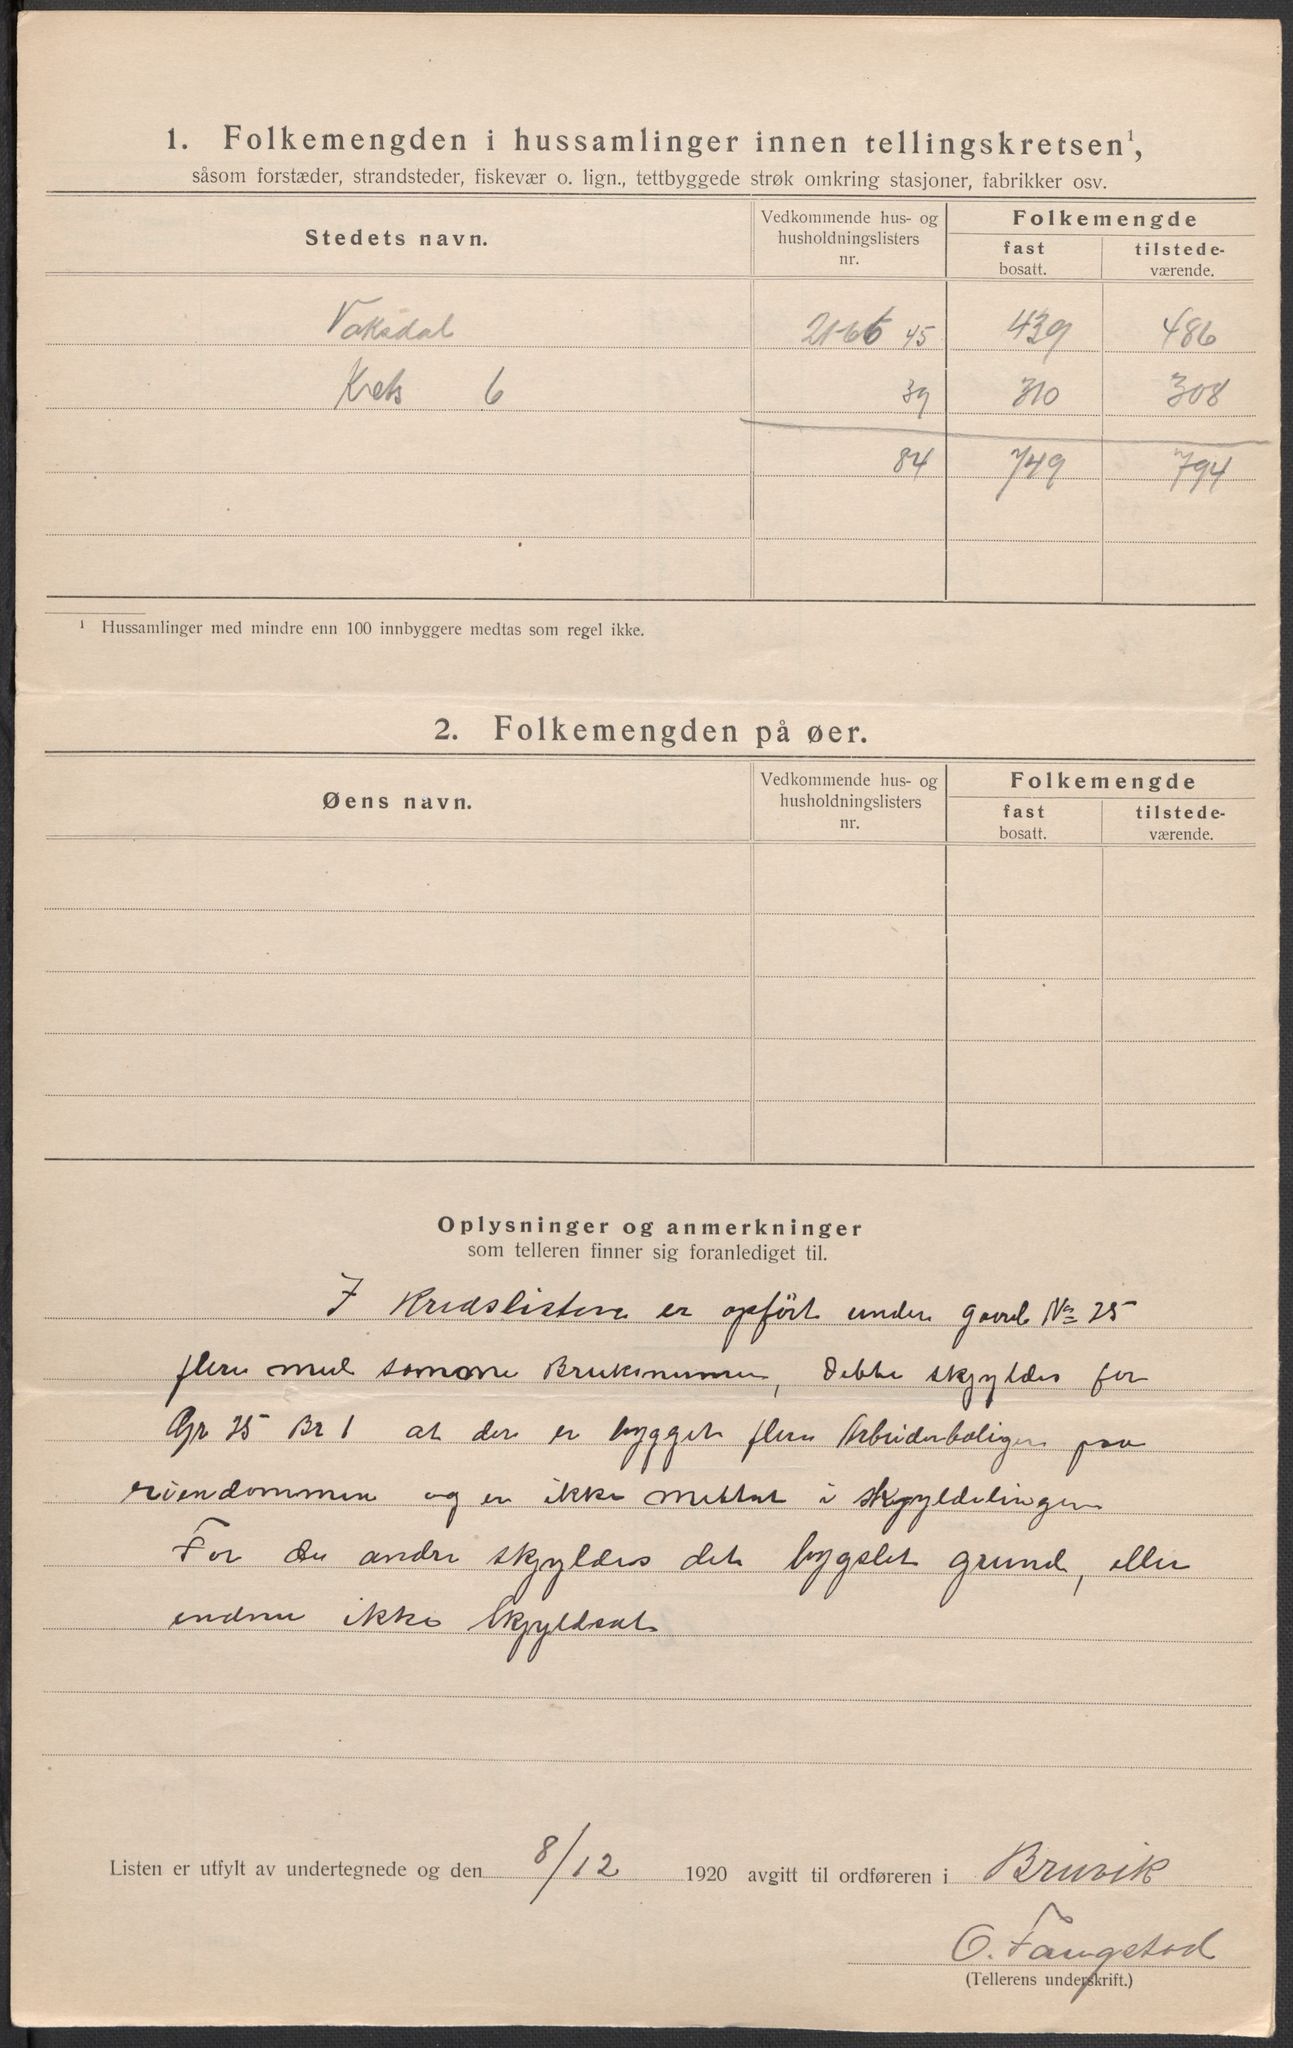 1. Folkemengden i hussamlinger innen tellingskretsen¹,
såsom forstæder, strandsteder, fiskevær o. lign., tettbyggede strøk omkring stasjoner, fabrikker osv.
Stedets navn. Vedkommende hus- og husholdningslisters nr. Folkemengde fast bosatt. tilstede-værende.
Vaksdal 21-65 45 439 486
Krets 6 39 310 308
84 749 794
¹ Hussamlinger med mindre enn 100 innbyggere medtas som regel ikke.
2. Folkemengden på øer.
Øens navn. Vedkommende hus- og husholdningslisters nr. Folkemengde fast bosatt. tilstede-værende.
Oplysninger og anmerkninger
som telleren finner sig foranlediget til.
I Kredslisten er opført under gaard No 25
flere med samme Bruksnummer, dette skyldes for
Gr 25 Br 1 at der er bygget flere Arbeiderboliger paa
eiendommen og er ikke mettat i skylddelingen
For de andre skyldes det bygslet grund, eller
endnu ikke skyldsat
Listen er utfylt av undertegnede og den 8/12 1920 avgitt til ordføreren i Bruvik
O. Fangstad
(Tellerens underskrift.)